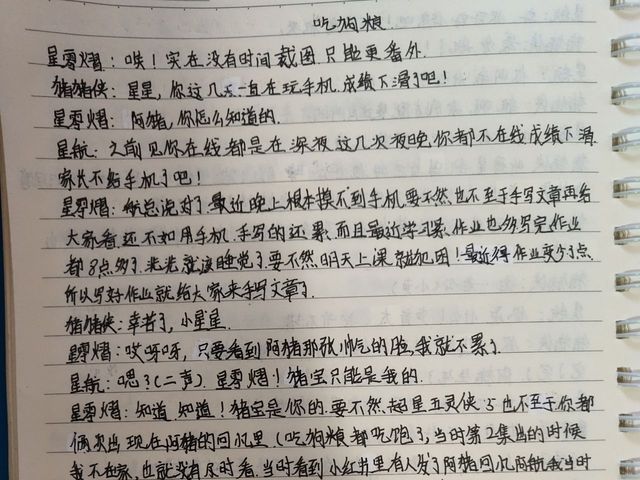 吃狗粮.
星零熠：唉！实在没有时间截图.只能更番外.
猪猪侠：星星，你这几天一直在玩手机.成绩下滑了吧！
星零熠：阿猪，你怎么知道的.
星航：之前见你在线都是在深夜.这几次夜晚你都不在线成绩下滑
家长不给手机了吧！
星零熠：航总说对了.最近晚上根本摸不到手机.要不然也不至于手写文章再给
大家看.还不如用手机.手写的还累.而且最近学习累.作业也多写完作业
都8点多了.就该睡觉了.要不然明天上课就犯困！最近得作业变少了点
所以写好作业就给大家来手写文章了.
猪猪侠：幸苦了，小星星.
星零熠：哎呀呀，只要看到阿猪那张帅气的脸.我就不累了.
星航：嗯？(二声) 星零熠！猪宝只能是我的.
星零熠：知道.知道！猪宝是你的.要不然.超星五灵侠5也不至于你都
俩次出现在阿猪的回忆里(吃狗粮都吃饱了，当时第2集出的时候
我不在家，也就没有及时看.当时看到小红书里有人发了阿猪回忆阿航我当时